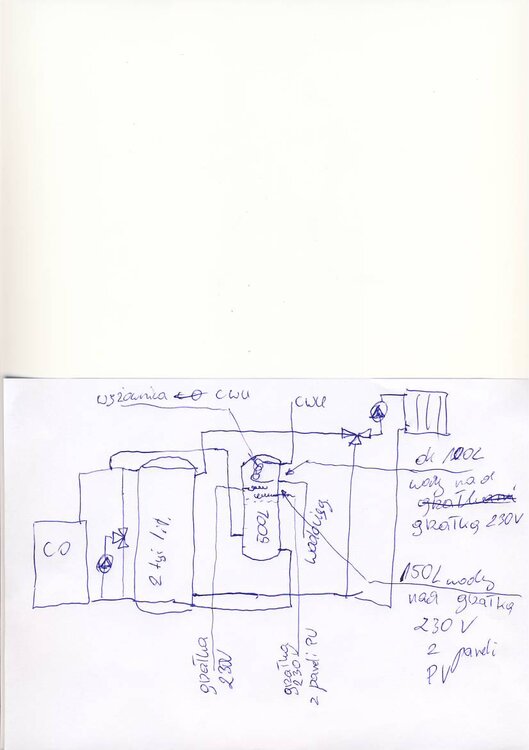 CWU
CWU
ok 100L
wody nad
grzałką 230V
CO
2 tyś lit.
500L
150L wody
nad grzałką
230 V
z paneli
PV
grzałka
230V
grzałka
230V
z paneli PV